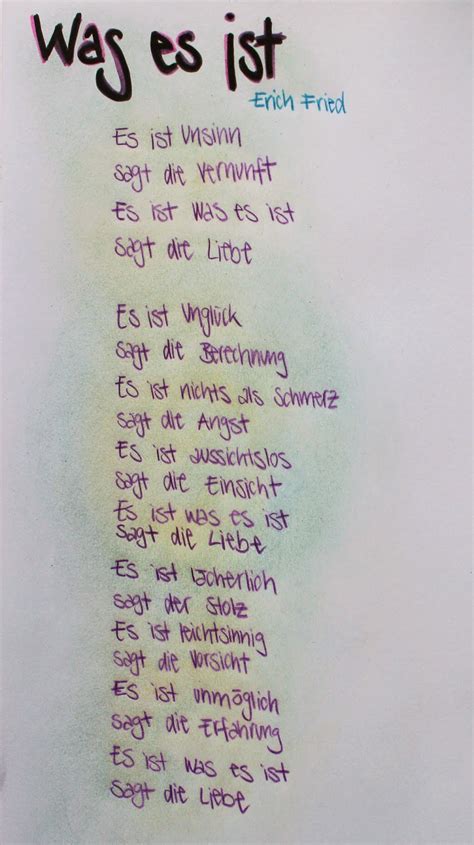 Was es ist
Erich Fried
Es ist Unsinn
sagt die Vernunft
Es ist Was es ist
sagt die Liebe
Es ist Unglück
sagt die Berechnung
Es ist nichts als Schmerz
sagt die Angst
Es ist aussichtslos
sagt die Einsicht
Es ist was es ist
sagt die Liebe
Es ist lächerlich
sagt der Stolz
Es ist leichtsinnig
sagt die Vorsicht
Es ist unmöglich
sagt die Erfahrung
Es ist was es ist
sagt die Liebe